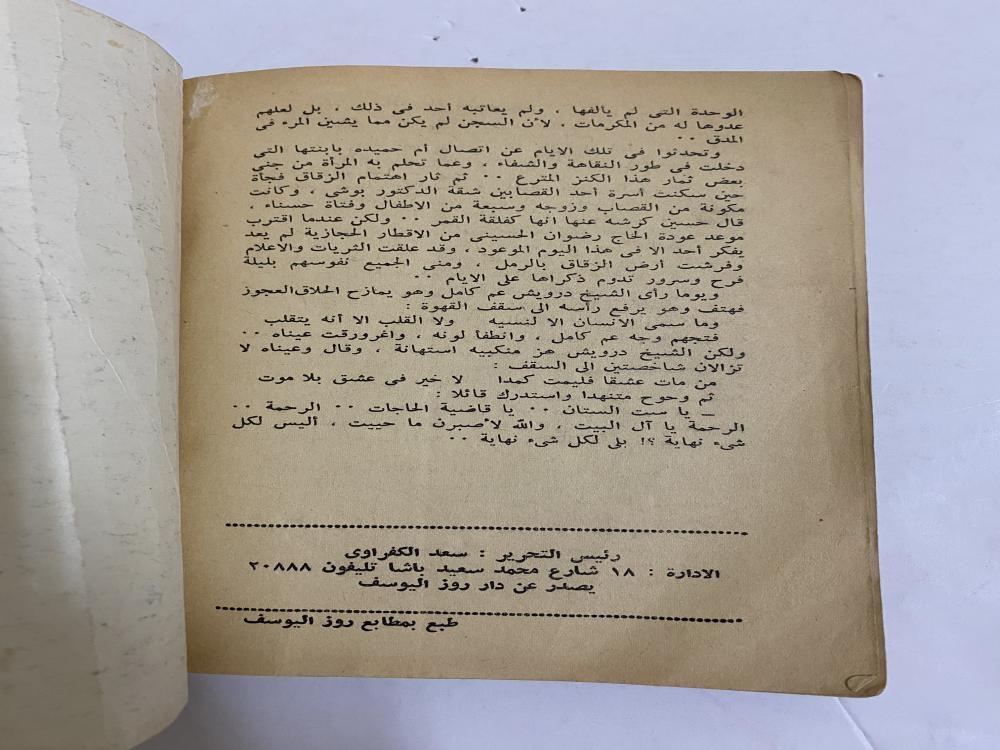 الوحدة التى لم يألفها ، ولم يعاتبه أحد فى ذلك ، بل لعلهم
عدوها له من المكرمات ، لأن السجن لم يكن مما يشين المرء فى
المدق ٠٠
وتحدثوا فى تلك الايام عن اتصال أم حميده بابنتها التى
دخلت فى طور النقاهة والشفاء ، وعما تحلم به المرأة من جنى
بعض ثمار هذا الكنز المترع ٠٠ ثم ثار اهتمام الزقاق فجأة
حين سكنت أسرة أحد القصابين شقة الدكتور بوشى ، وكانت
مكونة من القصاب وزوجه وسبعة من الاطفال وفتاة حسناء ،
قال حسين كرشه عنها انها كفلقة القمر ٠٠ ولكن عندما اقترب
موعد عودة الحاج رضوان الحسينى من الاقطار الحجازية لم يعد
يفكر أحد الا فى هذا اليوم الموعود ، وقد علقت الثريات والاعلام
وفرشت أرض الزقاق بالرمل ، ومنى الجميع نفوسهم بليلة
فرح وسرور تدوم ذكراها على الايام ٠٠
ويوما رأى الشيخ درويش عم كامل وهو يمازح الحلاق العجوز
فهتف وهو يرفع رأسه الى سقف القهوة :
وما سمى الانسان الا لنسيه ولا القلب الا أنه يتقلب
فتجهم وجه عم كامل ، وانطفأ لونه ، واغرورقت عيناه ٠٠
ولكن الشيخ درويش هز منكبيه استهانة ، وقال وعيناه لا
تزالان شاخصتين الى السقف :
من مات عشقا فليمت كمدا لا خير فى عشق بلا موت
ثم وحوح متنهدا واستدرك قائلا :
ــ يا ست الستان ٠٠ يا قاضية الحاجات ٠٠ الرحمة ٠٠
الرحمة يا آل البيت ، والله لأصبرن ما حييت ، أليس لكل
شىء نهاية ؟! بلى لكل شىء نهاية ٠٠
رئيس التحرير : سعد الكفراوى
الادارة : ١٨ شارع محمد سعيد باشا تليفون ٢٠٨٨٨
يصدر عن دار روز اليوسف
طبع بمطابع روز اليوسف